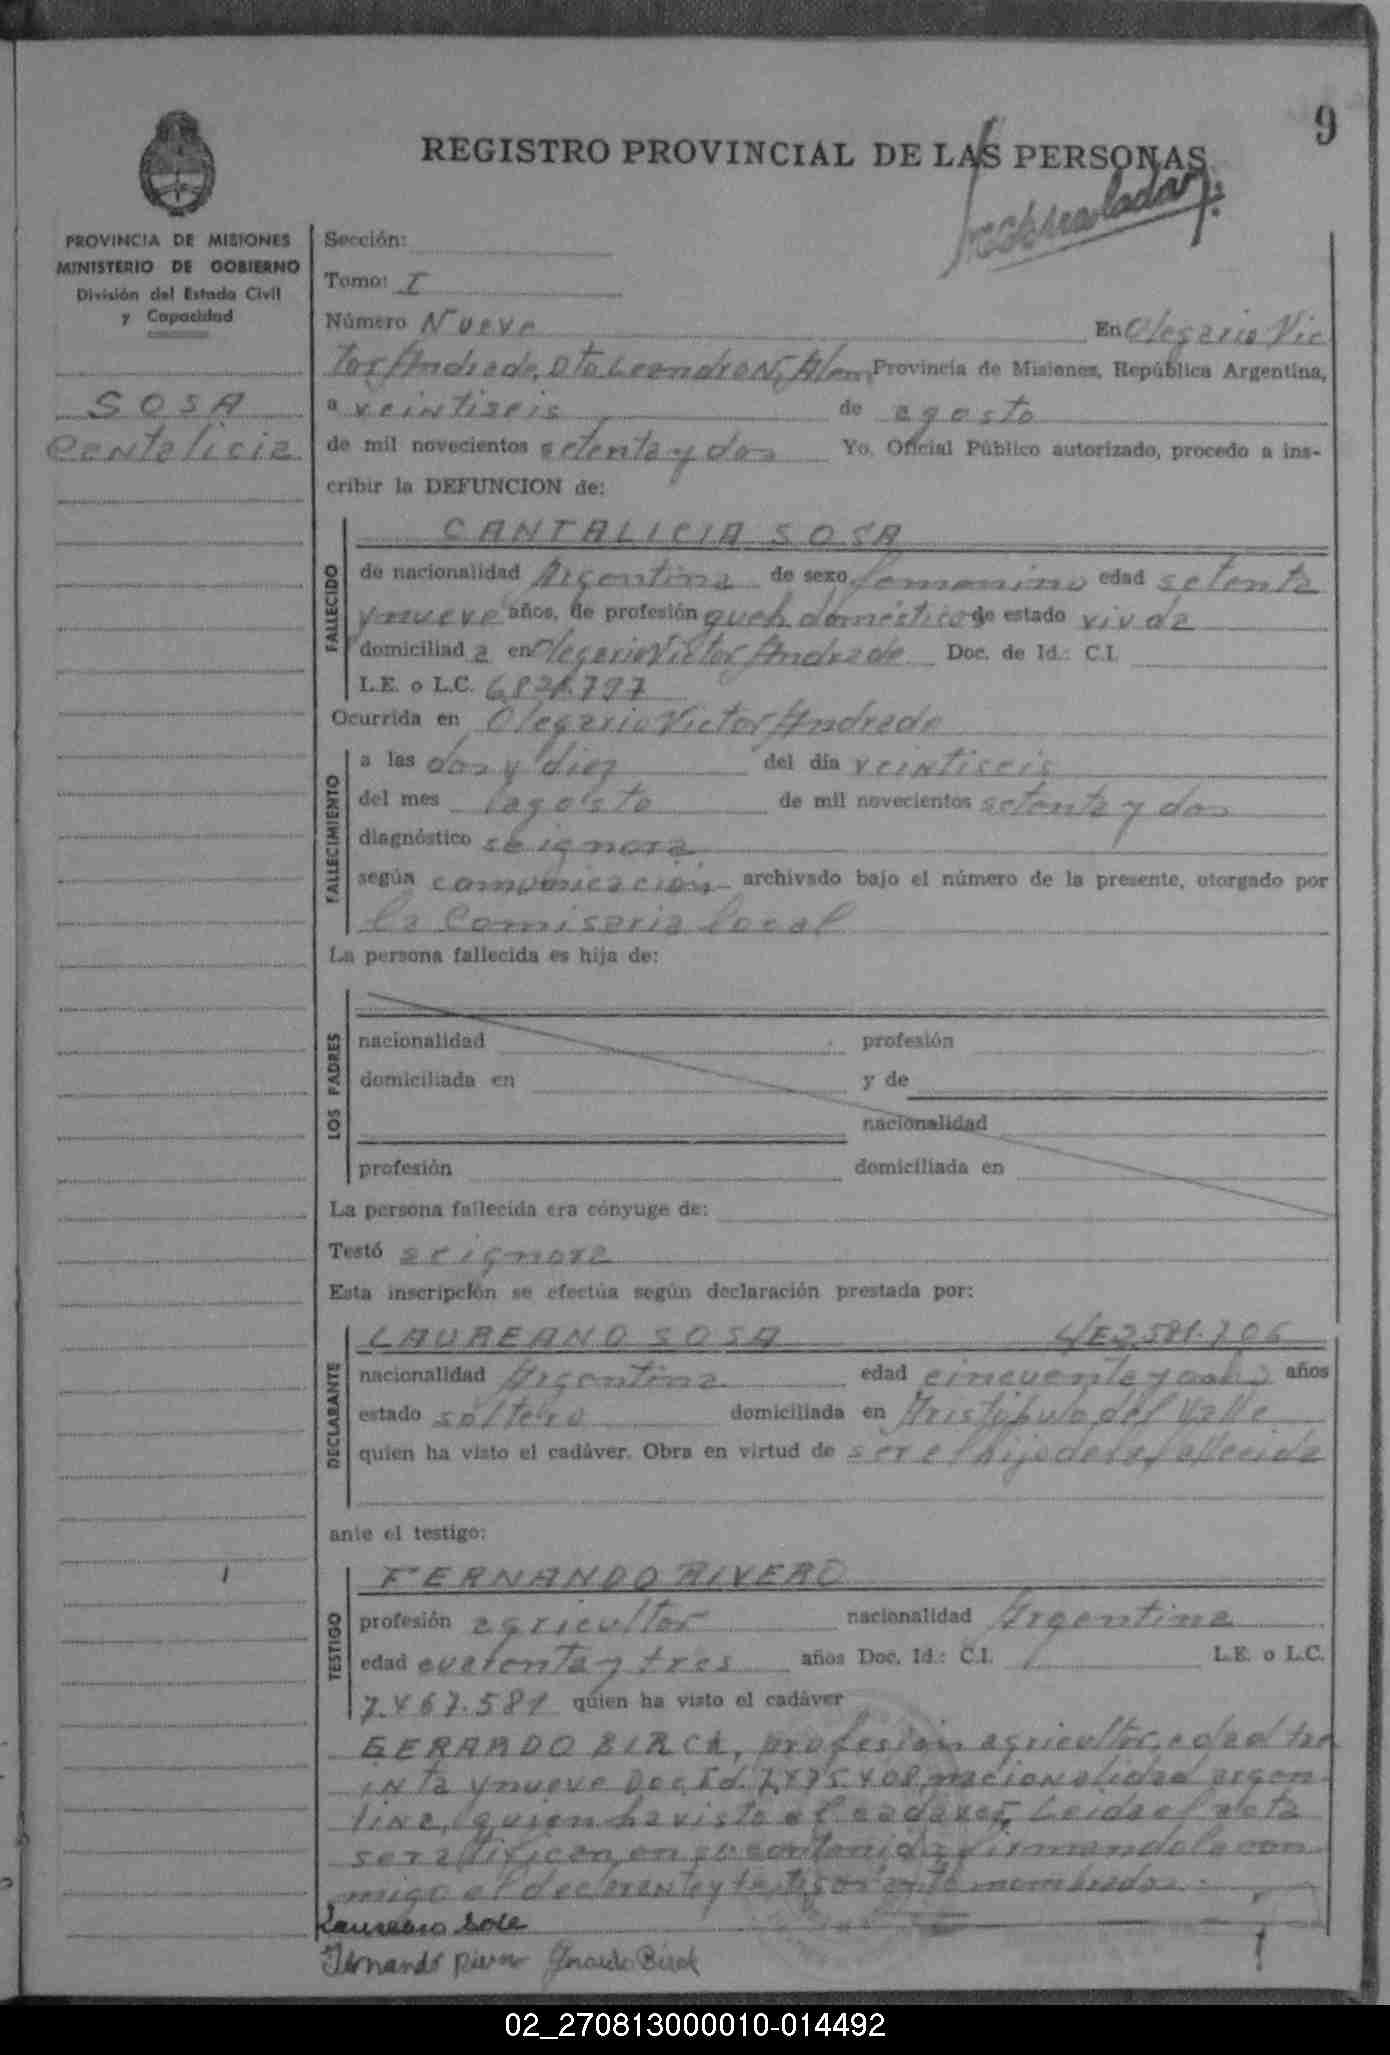 9
REGISTRO PROVINCIAL DE LAS PERSONAS
PROVINCIA DE MISIONES
MINISTERIO DE GOBIERNO
División del Estado Civil
y Capacidad
SOSA
Cantalicia
Sección:
Tomo: I
Número Nueve En Olegario Víc
tor Andrade, Dto Leandro N. Alem, Provincia de Misiones, República Argentina,
a veintiseis de agosto
de mil novecientos setenta y dos Yo, Oficial Público autorizado, procedo a ins-
cribir la DEFUNCION de:
FALLECIDO
CANTALICIA SOSA
de nacionalidad Argentina de sexo femenino edad setenta
y nueve años, de profesión queh. domésticos de estado viuda
domiciliad a en Olegario Victor Andrade Doc. de Id.: C.I.
L.E. o L.C. 6.821.797
Ocurrida en Olegario Victor Andrade
FALLECIMIENTO
a las dos y diez del día veintiseis
del mes agosto de mil novecientos setenta y dos
diagnóstico se ignora
según comunicación archivado bajo el número de la presente, otorgado por
la Comisaria local
La persona fallecida es hija de:
LOS PADRES
nacionalidad profesión
domiciliada en y de
nacionalidad
profesión domiciliada en
La persona fallecida era cónyuge de:
Testó se ignora
Esta inscripción se efectúa según declaración prestada por:
DECLARANTE
LAUREANO SOSA L/E 2.581.706
nacionalidad Argentina edad cincuenta y ocho años
estado soltero domiciliada en Aristóbulo del Valle
quien ha visto el cadáver. Obra en virtud de ser el hijo de la fallecida
ante el testigo:
TESTIGO
FERNANDO RIVERO
profesión agricultor nacionalidad Argentina
edad cuarenta y tres años Doc. Id.: C.I. L.E. o L.C.
7.467.581 quien ha visto el cadáver
GERARDO BIRCK, profesión agricultor, edad tre
inta y nueve Doc. Id. 7.475.408, nacionalidad argen
tina, quien ha visto el cadaver. Leida el acta
se ratifican en su contenido firmandola con
migo el declarante y testigos antes nombrados.
Laureano Sosa
Fernando Rivero Gerardo Birck
02_270813000010-014492